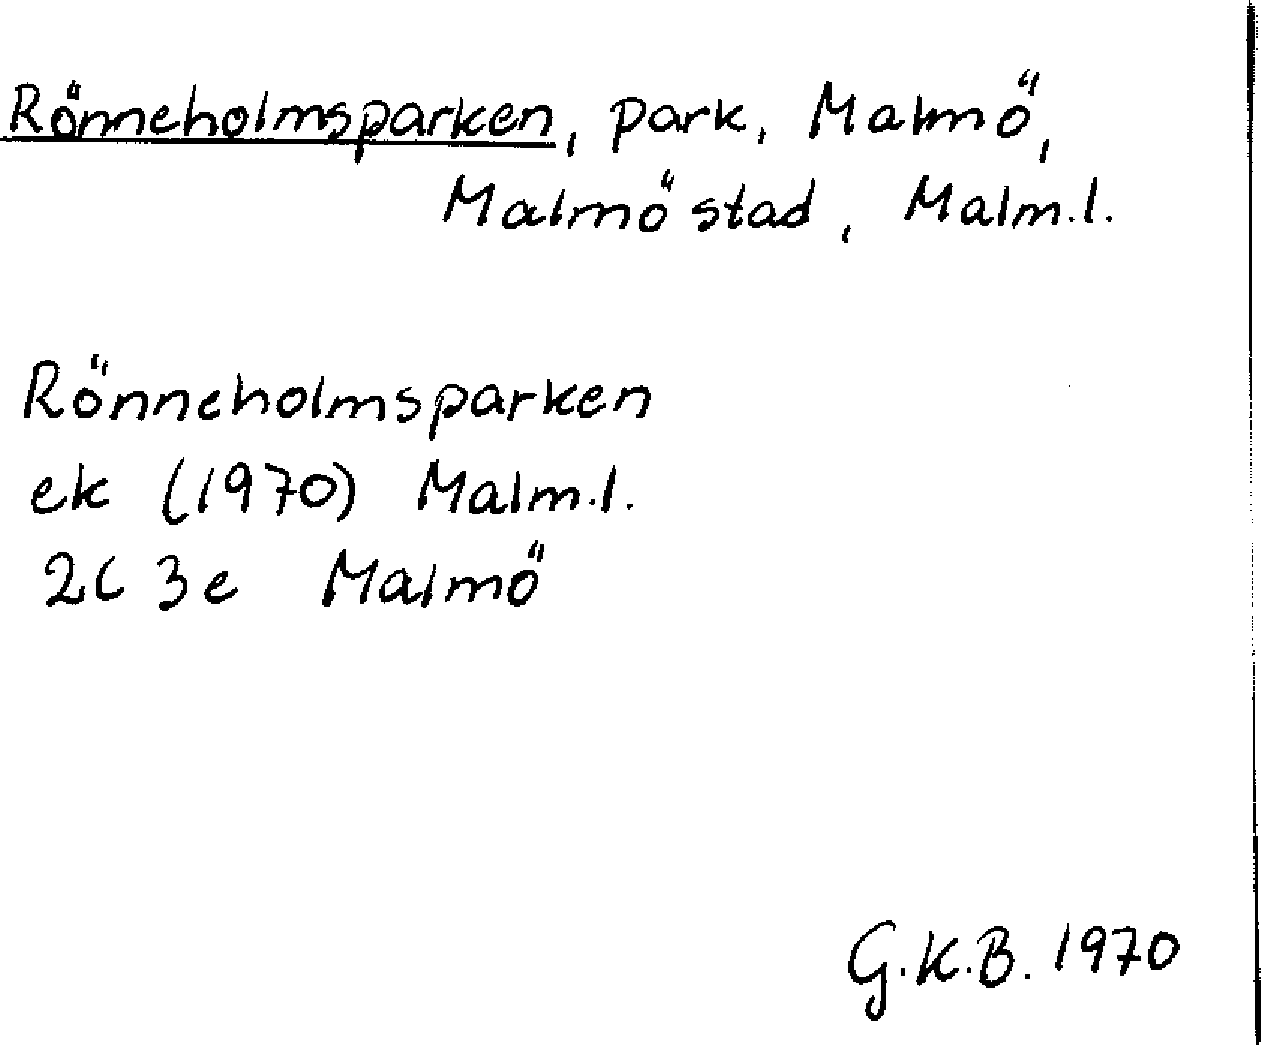 Rönneholmsparken, park, Malmö,
Malmö stad, Malm.l.
Rönneholmsparken
ek (1970) Malm.l.
2C 3e Malmö
G.K.B. 1970